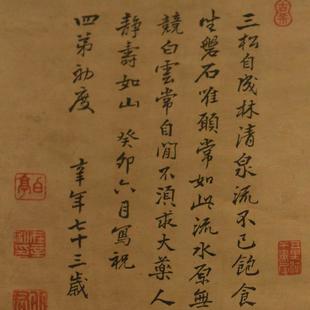 三松自成林清泉流不已飽食
坐磐石唯願常如此流水原無
競白雲常自閒不須求大藥人
静壽如山 癸卯六月寫祝
四弟初度
辛年七十三歲